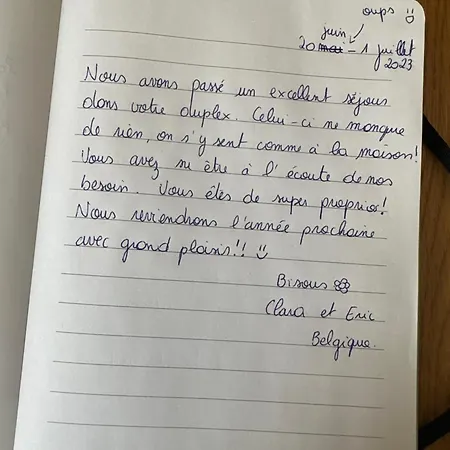 oups :)
juin
20 mai - 1 juillet
2023
Nous avons passé un excellent séjour
dans votre duplex. Celui-ci ne manque
de rien, on s'y sent comme à la maison!
Vous avez su être à l'écoute de nos
besoin. Vous êtes de super proprios!
Nous reviendrons l'année prochaine
avec grand plaisir!! :)
Bisous
Clara et Eric
Belgique.